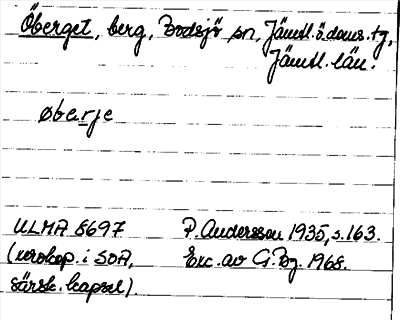 Öberget, berg, Bodsjö sn, Jämtl. ö. doms. tg,
Jämtl. län.
øberje
ULMA 8697 P. Andersson 1935, s. 163.
(verokop. i SOA, Exc. av G. Bg. 1968.
särsk. kapsel)